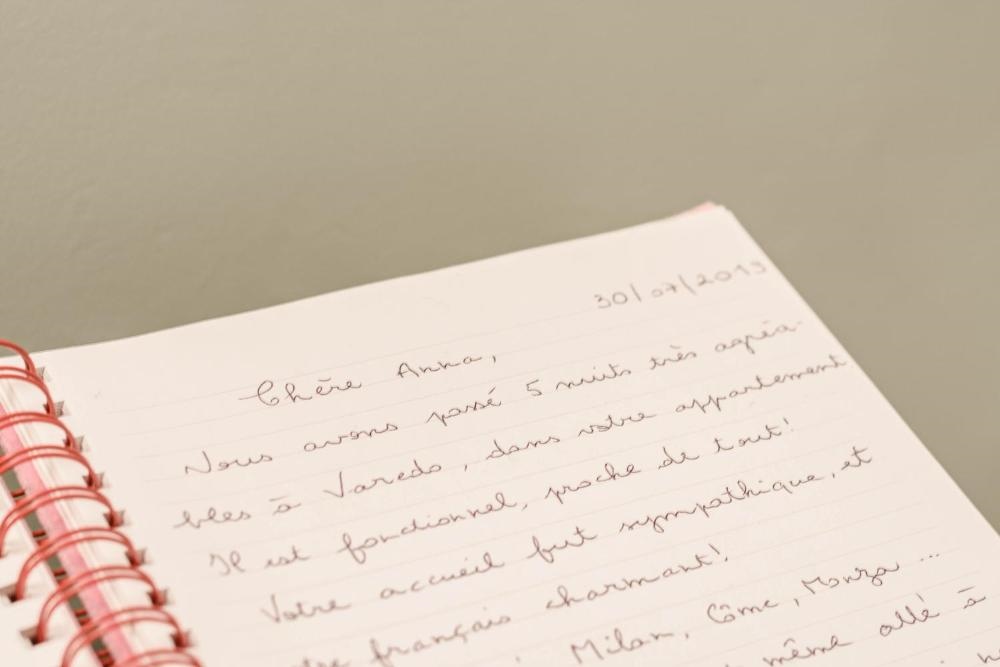 30/07/2013
Chère Anna,
Nous avons passé 5 nuits très agréa-
bles à Varedo, dans votre appartement
Il est fonctionnel, proche de tout!
Votre accueil fut sympathique, et
français charmant!
Milan, Côme, Monza ...
même allé à